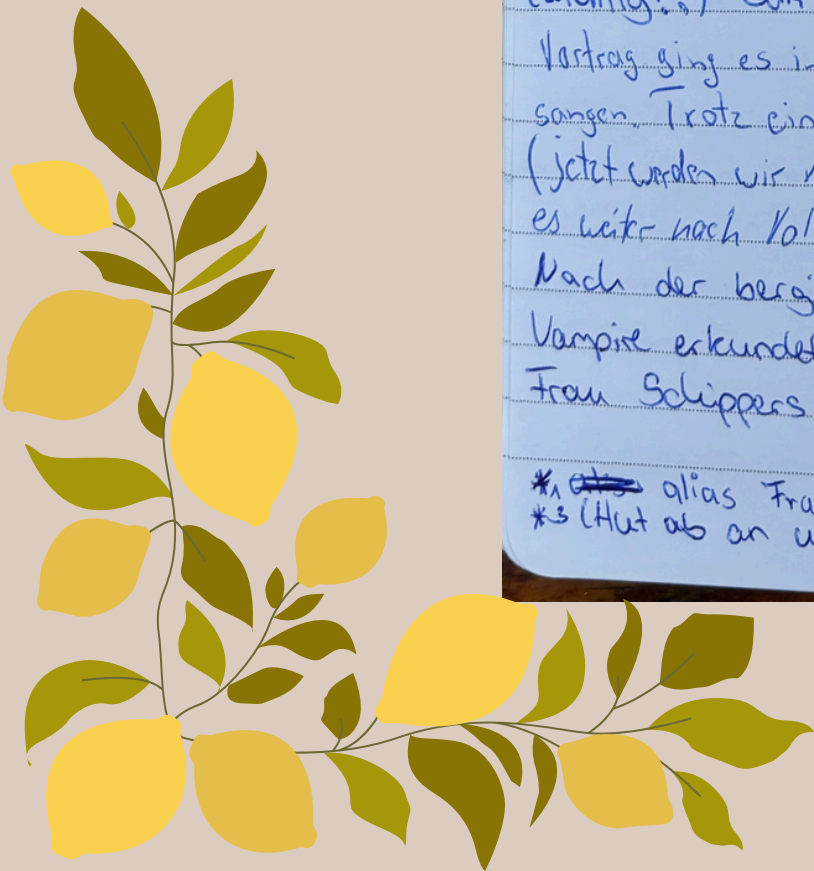 Vortrag ging es i
sangen. Trotz ein
(jetzt werden wir
es weiter nach Vol
Nach der berg
Vampire erkundet
Frau Schippers
*1 alias Fra
*3 (Hut ab an u